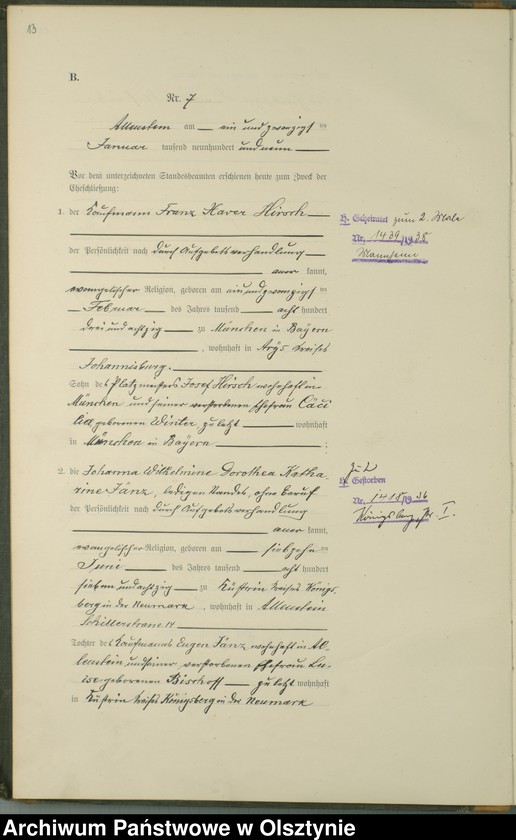 13
B.
Nr. 7
Allenstein am ein und zwanzigsten
Januar tausend neunhundert und neun
Vor dem unterzeichneten Standesbeamten erschienen heute zum Zweck der
Eheschließung:
1. der Kaufmann Franz Xaver Hirsch
der Persönlichkeit nach durch Aufgebotsverhandlung
aner kannt,
evangelischer Religion, geboren am ein und zwanzigsten
Februar des Jahres tausend acht hundert
drei und achtzig zu München in Bayern
, wohnhaft in Arys Kreises
Johannisburg.
Sohn des Platzmeisters Josef Hirsch wohnhaft in
München und seiner verstorbenen Ehefrau Cäci
lie geborenen Winter, zuletzt wohnhaft
in München in Bayern ;
2. die Johanna Wilhelmine Dorothea Katha-
rine Tänz, ledigen Standes, ohne Beruf
der Persönlichkeit nach durch Aufgebotsverhandlung
aner kannt,
evangelischer Religion, geboren am siebzehnten
Juni des Jahres tausend acht hundert
sieben und achtzig zu Küstrin Kreises Königs
berg in der Neumark, wohnhaft in Allenstein
Schillerstrasse 14
Tochter des Kaufmanns Eugen Tänz wohnhaft in Al-
lenstein und seiner verstorbenen Ehefrau Lu-
ise geborenen Bischoff zuletzt wohnhaft
in Küstrin Kreises Königsberg in der Neumark
H. Geheiratet zum 2. Male
Nr. 1439/1938
Mannheim
Zu 2
Gestorben
Nr. 1418/1936
Königsberg, Pr. I.
Archiwum Państwowe w Olsztynie